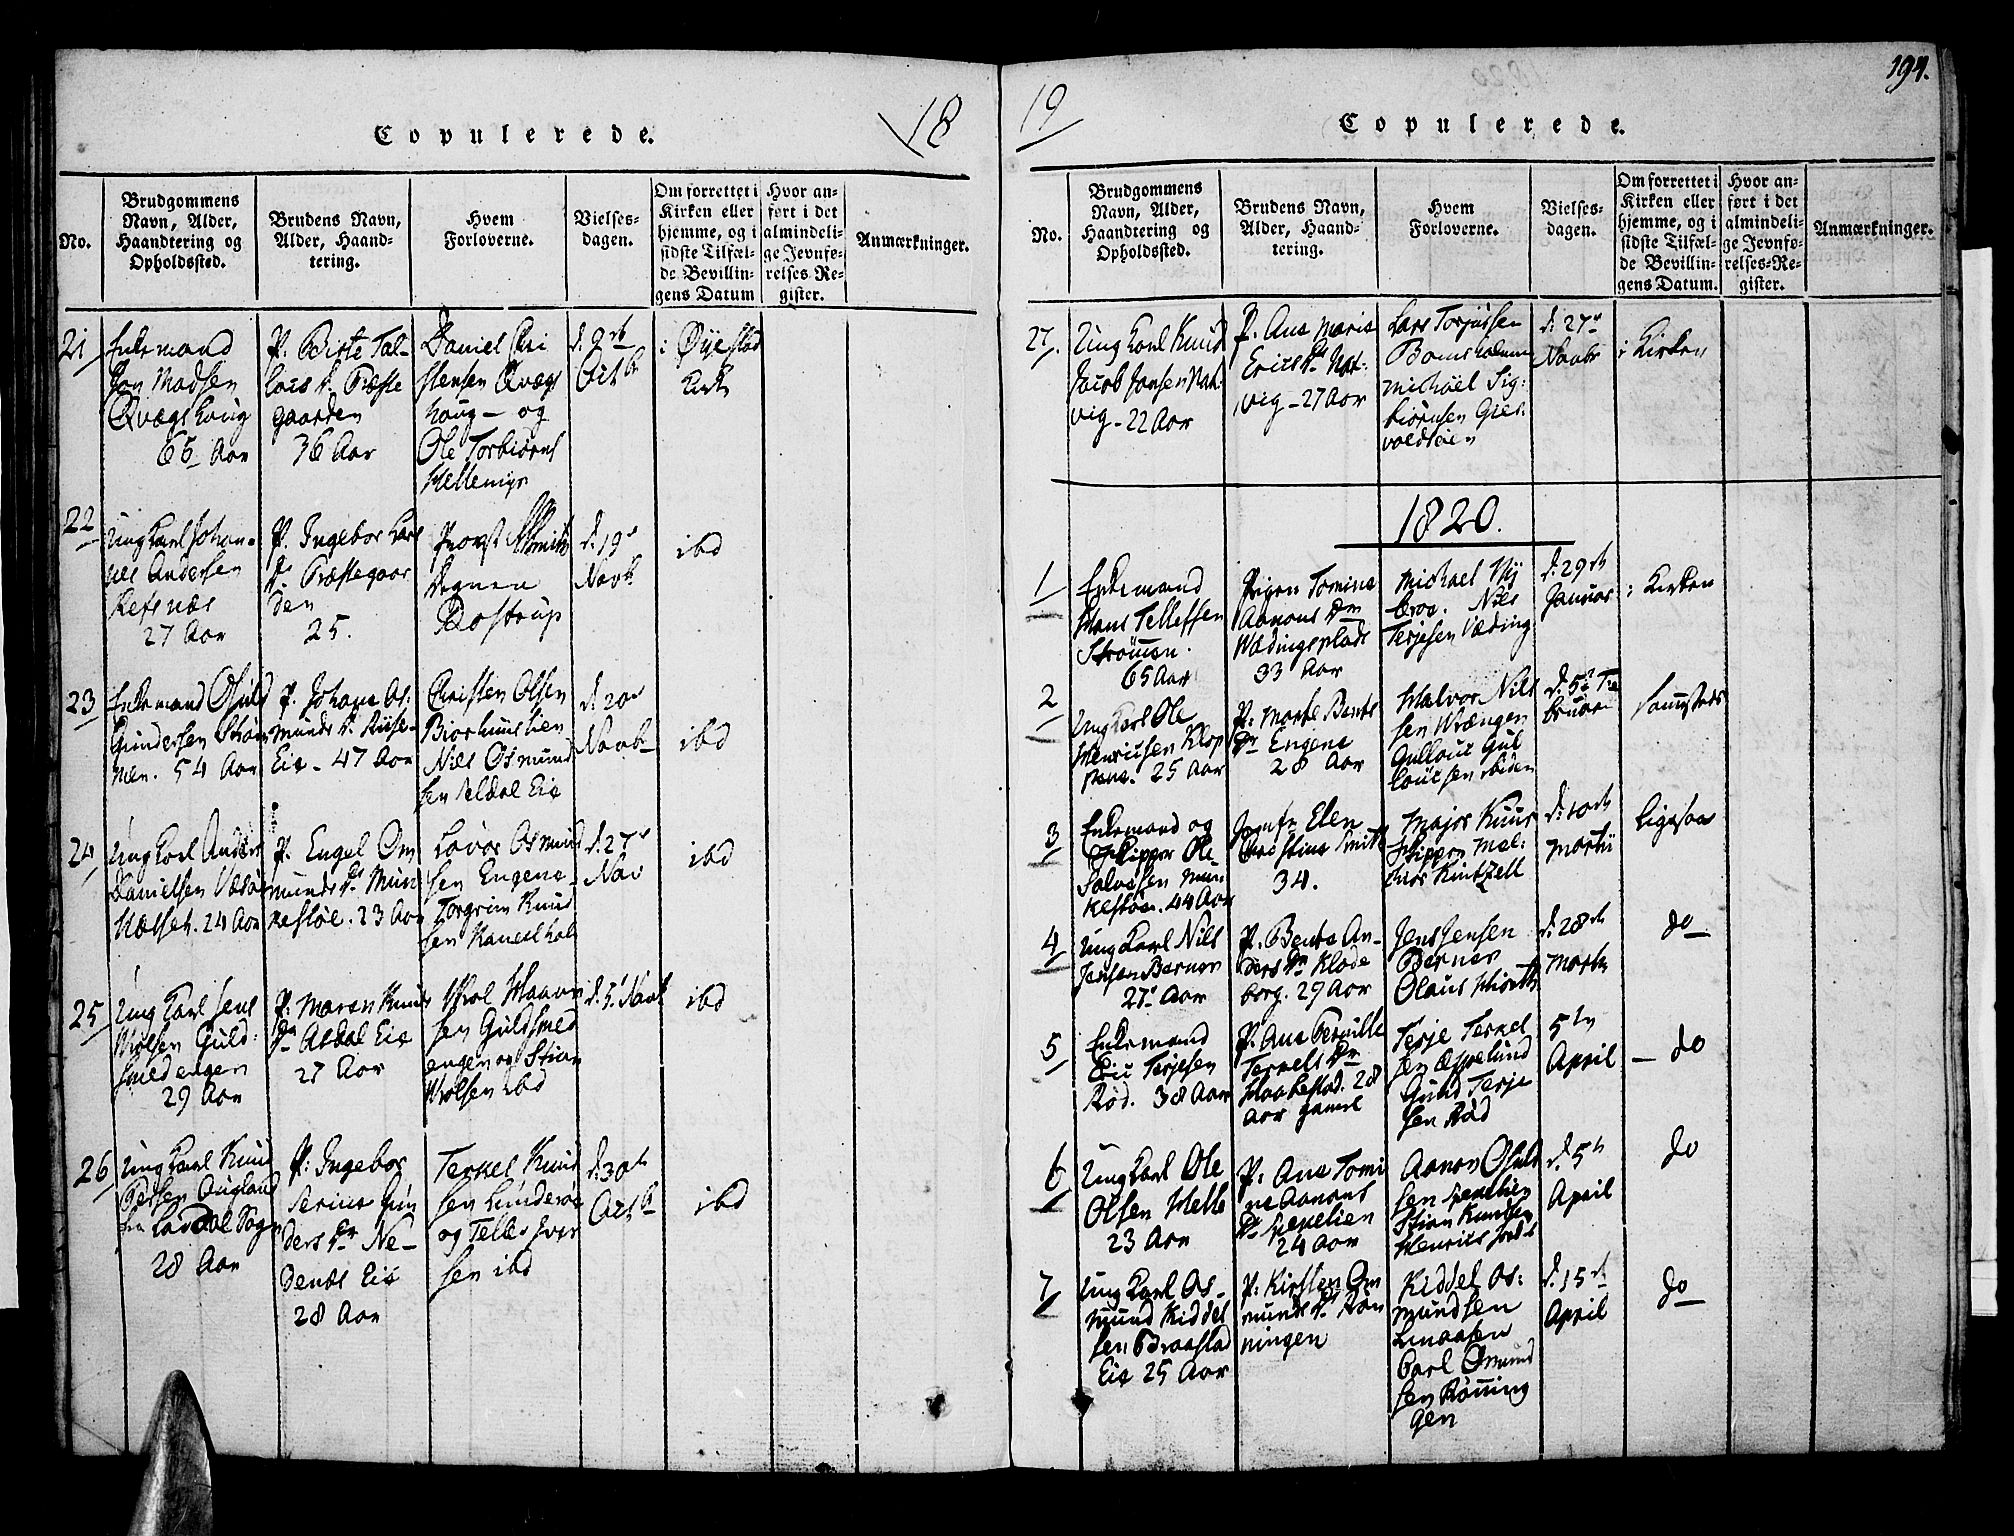 18
Copulerede.
No.
Brudgommens
Navn, Alder,
Haandtering og
Opholdssted.
Brudens Navn,
Alder, Haand-
tering.
Hvem
Forloverne.
Vielses-
dagen.
Om forrettet i
Kirken eller
hjemme, og i
sidste Tilfæl-
de Bevillin-
gens Datum
Hvor an-
ført i det
almindeli-
ge Jevnfø-
relses-Re-
gister.
Anmærkninger.
21
Enkemand
Jon Madsen
Qvægshoug
65 Aar
P. Birte Tal-
Præste
gaarden
36 Aar
Daniel Chri
stensen Qvægs
houg - og
Ole Torbiørns
Hellemyr
d. 9de
Octb
i Øyestad
Kirke
22
Ung Karl Johan-
nes Andersen
Refsnæs
27 Aar
P. Ingebor Lars
Dr Præstegaar
den
25.
Provst Smith
Degnen
Rostrup
d. 19de
Novb
ibd
23
Enkemand Osuld
Gundersen Strøm
men. 54 Aar
P. Johana As:
munds D.
Eie - 47 Aar
Christen Olsen
Niels Osmund
sen Eie
d. 20de
Novbr
ibd
24
Ung Karl Anders
Danielsen
24 Aar
P. Engel Om
munds D. Mun
kestøe. 23 Aar
Lavor Osmund
sen Engene
Torgrim Knud
sen
d. 27de
Nov
ibd
25
Ung Karl Jens
Wrolsen Guld-
smedengen
29 Aar
P. Maren Knuds
Dr Asdal Eie
27 Aar
Wrol Haavor
sen Guldsmed
engen og Stian
Wrolsen ibd
d. 5' Novb
ibd
26
Ung Karl Knud
Persen Augland
fra Sogn
28 Aar
P: Ingebor
Serine Gun
ders Dr Ne-
denæs Eie
28 Aar
Terkel Knud
sen Linderøe
og Tellef Iver
sen ibd
d. 30te
Octb
ibd
19
194.
Copulerede.
No.
Brudgommens
Navn, Alder,
Haandtering og
Opholdssted.
Brudens Navn,
Alder, Haand-
tering.
Hvem
Forloverne.
Vielses-
dagen.
Om forrettet i
Kirken eller
hjemme, og i
sidste Tilfæl-
de Bevillin-
gens Datum.
Hvor an-
ført i det
almindeli-
ge Jevnfø-
relses-Re-
gister.
Anmærkninger.
27.
Ung Karl Knud
Jacob Jansen Nat-
vig - 22 Aar
P. Ane Marie
Erics Dr Nat-
vig - 27 Aar
Lars Torjussen
Michael Sig:
biørnsen Gies-
voldsøien
d: 27de
Novbr
i Kirken
1820.
1
Enkemand
Hans Tellefsen
Strømmen.
65 Aar
Pigen Tomine
Aanons Dr
Wædingsplads
33 Aar
Michael Ny
broe. Nils
Terjesen Væding
d: 29de
Januar
i Kirken
2
Ung Karl Ole
Henricsen Klop
25 Aar
P: Marte Bents
Dr Engene
28 Aar
Halvor Nils
sen Wrængen
Gullouc Gul
loucsen
d: 5te Fe
bruari
Sammesteds
3
Enkemand og
Skipper Ole
Salvesen Mun
kestøe. 44 Aar
Jomfr. Elen
Christine Smith
34.
Major Kuur
Skipper Mel-
chior Kintzell
d: 10de
Martii
ligesaa
4
Ung Karl Nils
Jensen Berner
27 Aar
P. Bente An-
ders Dr Klode
borg. 29 Aar
Jens Jensen
Berner
Olaus Hiorth
d: 28de
Marti
do
5
Enkemand
Eric Terjesen
Rød. 38 Aar
P. Ane Pernille
Terkels Dr
Haabestad. 28
Aar gamel
Terje Terkel
sen Espelund
Gund Terje
sen Rød
5te
April
- do
6
Ung Karl Ole
Olsen Helle
23 Aar
P: Ane Tomi
ne Aanons
Dr
24 Aar
Aanon Osuld
sen
Stian Knudsen
d. 5te
April
do
7
Ung Karl Os-
mund Kiddel
sen Braastad
Eie 25 Aar
P: Kirsten Om
munds Dr Røn
ningen
Kiddel Os:
mundsen
Linaasen
Carl Omund
sen Rønning
gen
d. 15de
April
do